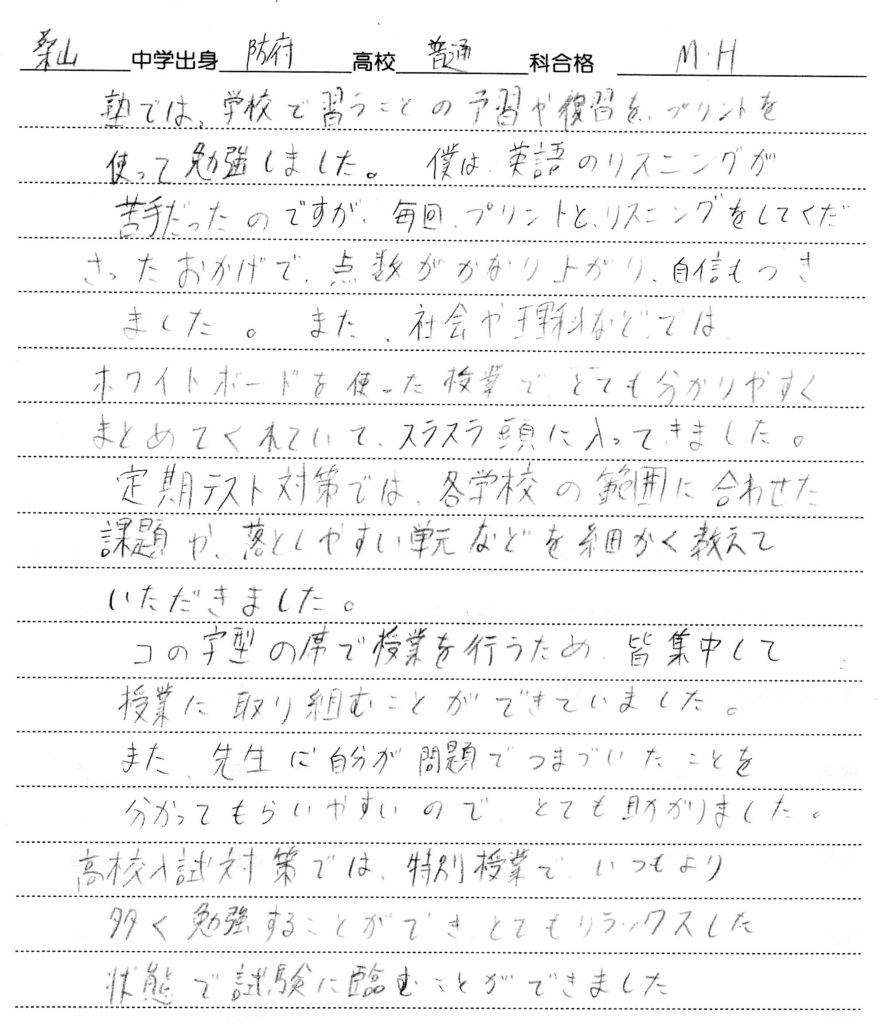 桑山中学出身 防府高校 普通科合格 M・H
塾では、学校で習うことの予習や復習を、プリントを
使って勉強しました。 僕は、英語のリスニングが
苦手だったのですが、毎回、プリントと、リスニングをしてくだ
さったおかげで、点数がかなり上がり、自信もつき
ました。 また、社会や理科などでは、
ホワイトボードを使った授業で、とても分かりやすく
まとめてくれていて、スラスラ頭に入ってきました。
定期テスト対策では、各学校の範囲に合わせた
課題や、落としやすい単元などを細かく教えて
いただきました。
コの字型の席で授業を行うため、皆集中して
授業に取り組むことができていました。
また、先生に自分が問題でつまづいたことを
分かってもらいやすいので、とても助かりました。
高校入試対策では、特別授業で、いつもより
多く勉強することができ、とてもリラックスした
状態で試験に臨むことができました